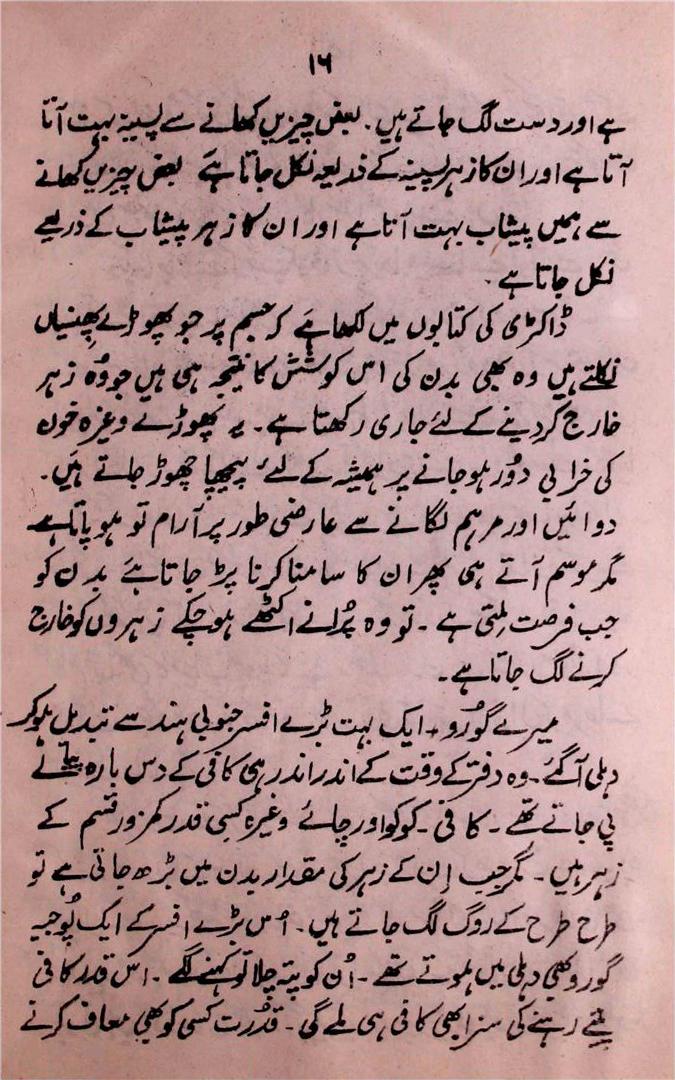 ۱۶
ہے اور دست لگ جاتے ہیں۔ بعض چیزیں کھانے سے پسینہ بہت آتا
آتا ہے اور ان کا زہر پسینہ کے ذریعہ نکل جاتا ہے بعض چیزیں کھانے
سے ہمیں پیشاب بہت آتا ہے اور ان کا زہر پیشاب کے ذریعے
نکل جاتا ہے۔
ڈاکٹری کی کتابوں میں لکھا ہے کہ جسم پر جو پھوڑے پھنسیاں
نکلتے ہیں وہ بھی بدن کی اس کوشش کا نتیجہ ہی ہیں جو وُہ زہر
خارج کر دینے کے لئے جاری رکھتا ہے۔ یہ پھوڑے وغیرہ خون
کی خرابی دُور ہو جانے پر ہمیشہ کے لئے پیچھا چھوڑ جاتے ہیں۔
دوائیں اور مرہم لگانے سے عارضی طور پر آرام تو ہو پاتا ہے
مگر موسم آتے ہی پھر ان کا سامنا کرنا پڑ جاتا ہے بدن کو
جب فرصت مِلتی ہے۔ تو وہ پُرانے اکٹھے ہو چکے زہروں کو خارج
کرنے لگ جاتا ہے۔
میرے گورُو۔ ایک بہت بڑے افسر جنوبی ہند سے تبدیل ہو کر
دہلی آ گئے۔ وہ دفتر کے وقت کے اندر اندر ہی کافی کے دس بارہ
پی جاتے تھے۔ کافی۔ کوکو اور چائے وغیرہ کسی قدر کمزور قسم کے
زہر ہیں۔ مگر جب اِن کے زہر کی مقدار بدن میں بڑھ جاتی ہے تو
طرح طرح کے روگ لگ جاتے ہیں۔ اُس بڑے افسر کے ایک پُوجیہ
گورو بھی دہلی میں ہوتے تھے۔ اُن کو پتہ چلا تو کہنے لگے۔ اس قدر کافی
پیتے رہنے کی سزا بھی کافی ہی ملے گی۔ قدُرت کسی کو بھی معاف کرنے